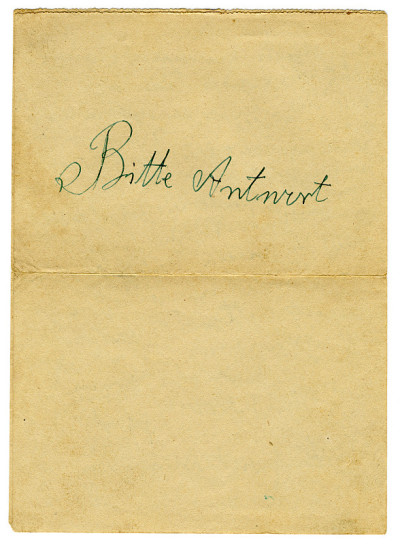 Bitte Antwort